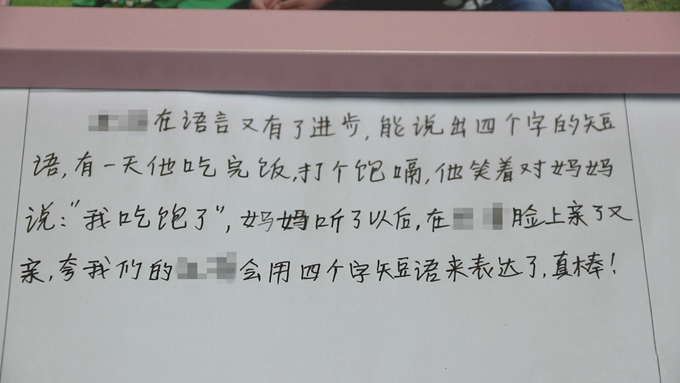 在语言又有了进步,能说出四个字的短
语,有一天他吃完饭,打个饱嗝,他笑着对妈妈
说:"我吃饱了",妈妈听了以后,在脸上亲了又
亲,夸我们的会用四个字短语来表达了,真棒!